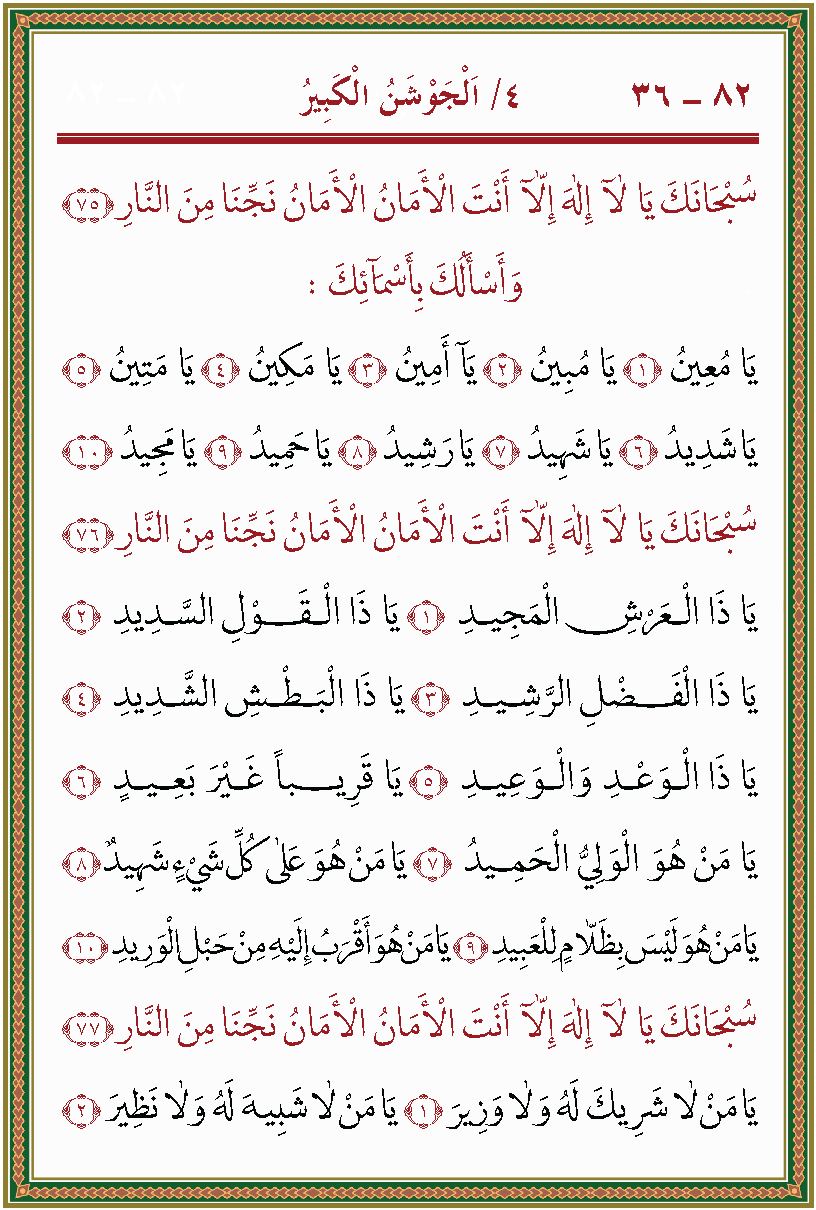 ٨٢ – ٣٦ ٤/ اَلْجَوْشَنُ الْكَبِيرُ ٨٢ – ٨٢
سُبْحَانَكَ يَا لَآ إِلٰهَ إِلَّآ أَنْتَ الْأَمَانُ الْأَمَانُ نَجِّنَا مِنَ النَّارِ ﴿٧٥﴾
وَأَسْأَلُكَ بِأَسْمَآئِكَ :
يَا مُعِينُ ﴿١﴾ يَا مُبِينُ ﴿٢﴾ يَآ أَمِينُ ﴿٣﴾ يَا مَكِينُ ﴿٤﴾ يَا مَتِينُ ﴿٥﴾
يَا شَدِيدُ ﴿٦﴾ يَا شَهِيدُ ﴿٧﴾ يَا رَشِيدُ ﴿٨﴾ يَا حَمِيدُ ﴿٩﴾ يَا مَجِيدُ ﴿١٠﴾
سُبْحَانَكَ يَا لَآ إِلٰهَ إِلَّآ أَنْتَ الْأَمَانُ الْأَمَانُ نَجِّنَا مِنَ النَّارِ ﴿٧٦﴾
يَا ذَا الْعَرْشِ الْمَجِيدِ ﴿١﴾ يَا ذَا الْقَوْلِ السَّدِيدِ ﴿٢﴾
يَا ذَا الْفَضْلِ الرَّشِيدِ ﴿٣﴾ يَا ذَا الْبَطْشِ الشَّدِيدِ ﴿٤﴾
يَا ذَا الْوَعْدِ وَالْوَعِيدِ ﴿٥﴾ يَا قَرِيباً غَيْرَ بَعِيدٍ ﴿٦﴾
يَا مَنْ هُوَ الْوَلِيُّ الْحَمِيدُ ﴿٧﴾ يَا مَنْ هُوَ عَلٰى كُلِّ شَيْءٍ شَهِيدٌ ﴿٨﴾
يَا مَنْ هُوَ لَيْسَ بِظَلَّامٍ لِلْعَبِيدِ ﴿٩﴾ يَا مَنْ هُوَ أَقْرَبُ إِلَيْهِ مِنْ حَبْلِ الْوَرِيدِ ﴿١٠﴾
سُبْحَانَكَ يَا لَآ إِلٰهَ إِلَّآ أَنْتَ الْأَمَانُ الْأَمَانُ نَجِّنَا مِنَ النَّارِ ﴿٧٧﴾
يَا مَنْ لَا شَرِيكَ لَهُ وَلَا وَزِيرَ ﴿١﴾ يَا مَنْ لَا شَبِيهَ لَهُ وَلَا نَظِيرَ ﴿٢﴾